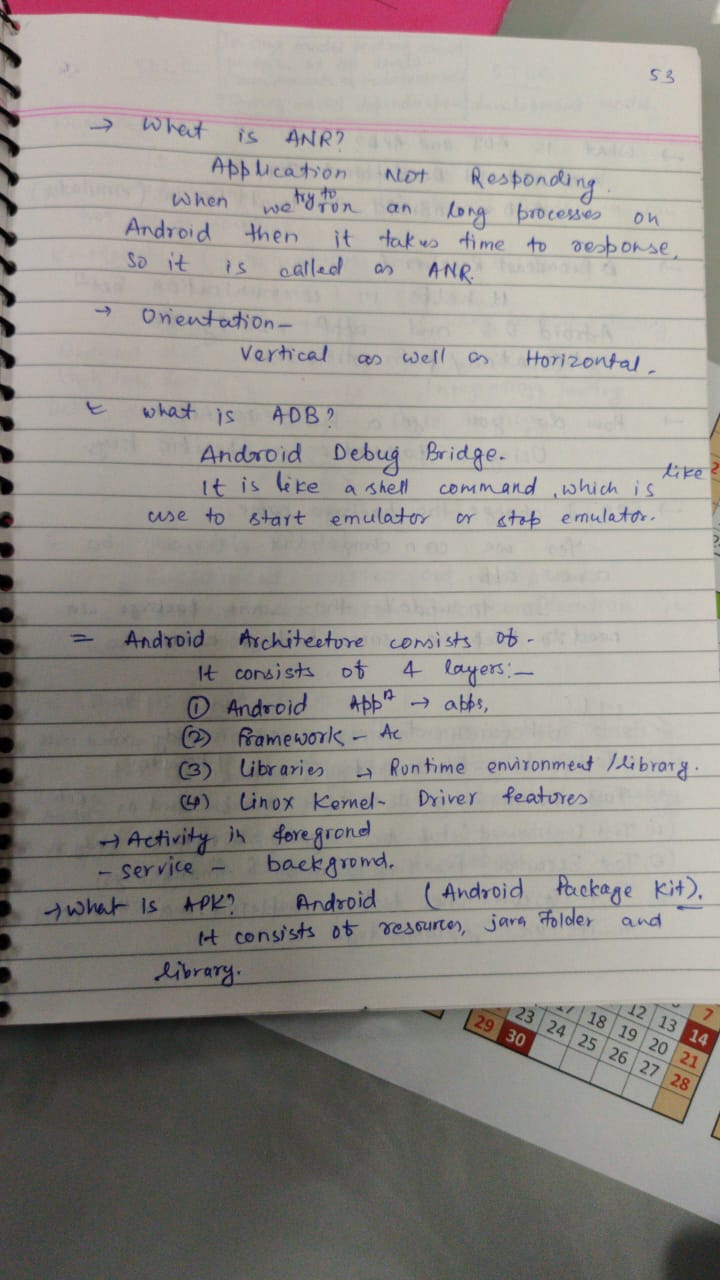 53
→ What is ANR?
Application Not Responding.
When we try to run an long processes on
Android then it takes time to response.
So it is called as ANR.
→ Orientation -
Vertical as well as Horizontal.
what is ADB?
Android Debug Bridge.
It is like a shell command, which is like
use to start emulator or stop emulator.
= Android Architecture consists of -
It consists of 4 layers:-
① Android Appn → apps,
(2) Framework - Ac
(3) Libraries → Runtime environment / library.
(4) Linux Kernel - Driver features
→ Activity in foregrond
- service - backgrond.
→ What is APK? Android (Android Package Kit).
It consists of resources, java folder and
library.
12 13 7
23 17 18 19 20 14
29 30 24 25 26 27 21
28